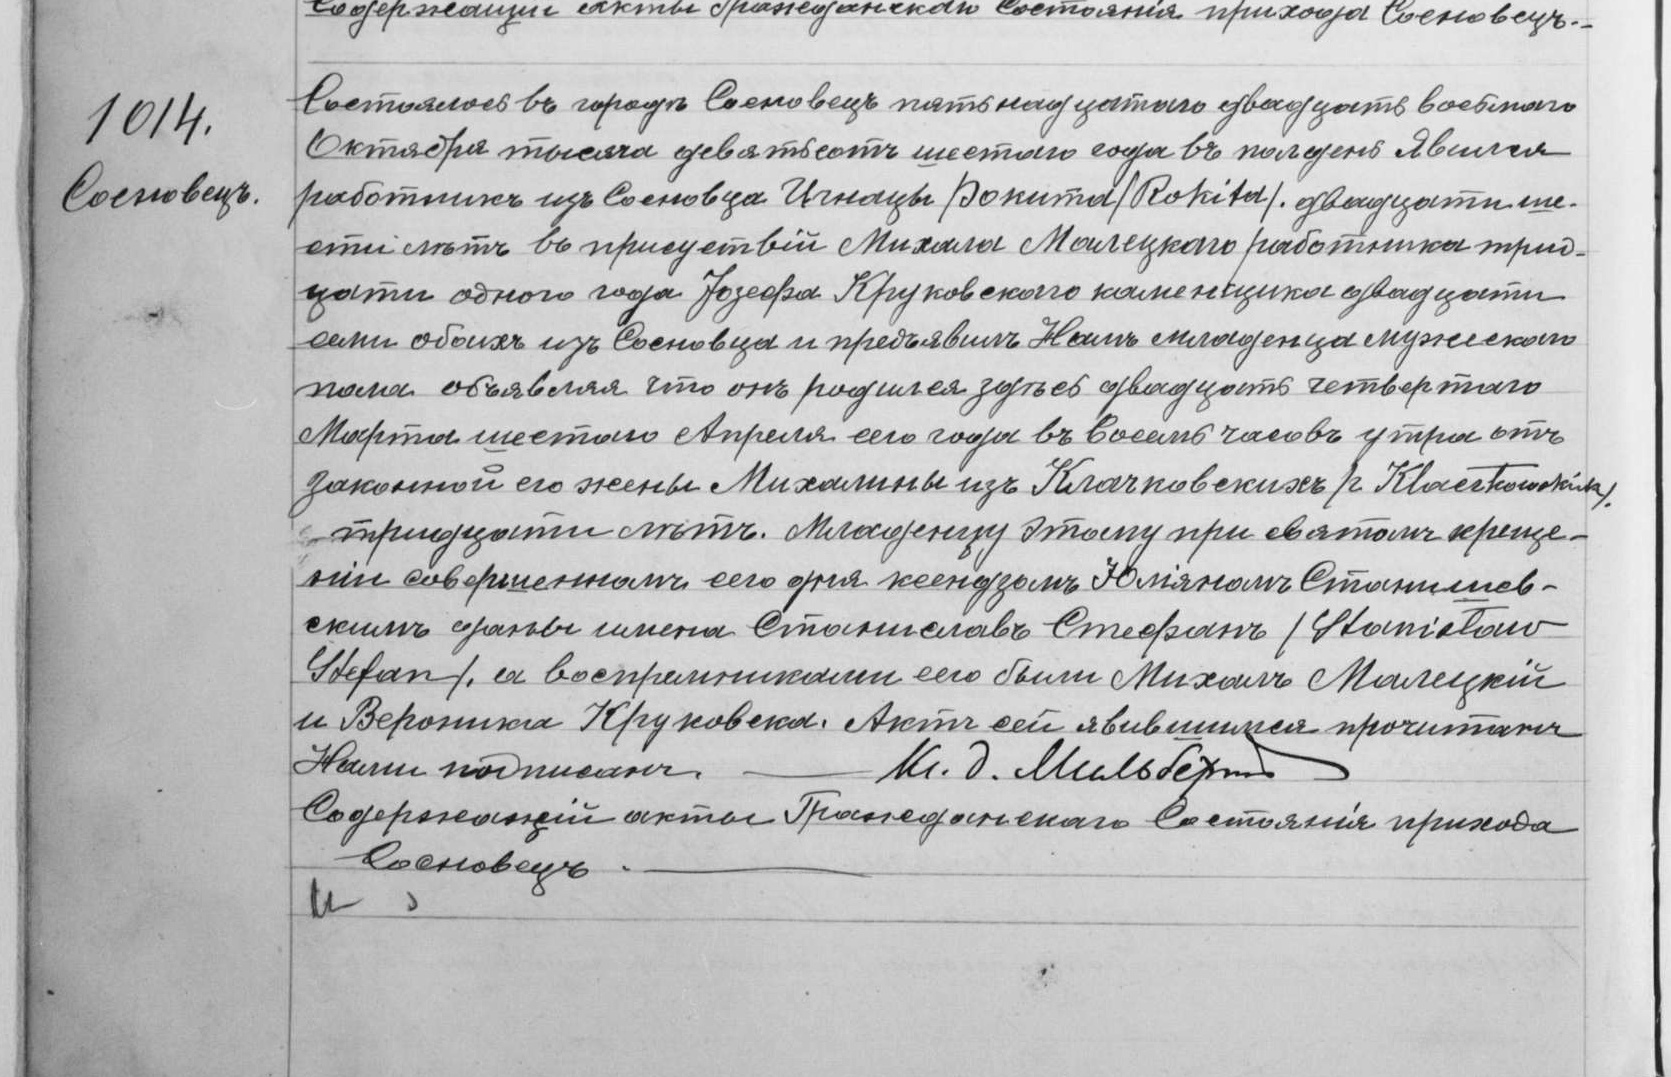 Содержащій акты Гражданскаго Состоянія прихода Сосновецъ.-
1014.
Сосновецъ.
Состоялось въ городѣ Сосновецъ пятьнадцатаго двадцать восьмаго
Октября тысяча девятьсотъ шестаго года въ полдень Явился
работникъ изъ Сосновца Игнацы Рокита /Rokita/. двадцати ше-
сти лѣтъ въ присуствій Михала Малецкаго работника трид-
цати одного года Јозефа Круковскаго каменщика двадцати
семи обоихъ изъ Сосновца и предъявилъ Намъ младенца мужескаго
пола объявляя что онъ родился здѣсь двадцать четвертаго
Марта шестаго Апреля сего года въ восемь часовъ утра отъ
законной его жены Михалины изъ Клачковскихъ /z Klaczkowskich/.
тридцати лѣтъ. Младенцу этому при святомъ креще-
ніи совершенномъ сего дня ксендзомъ Юліяномъ Станишев-
скимъ даны имена Станиславъ Стефанъ /Stanisław
Stefan/. а воспремниками его были Михалъ Малецкій
и Вероника Круковска. Актъ сей явившимся прочитанъ
Нами подписанъ. Кс. д. Мильбертъ
Содержащій акты Гражданскаго Состоянія прихода
Сосновецъ.